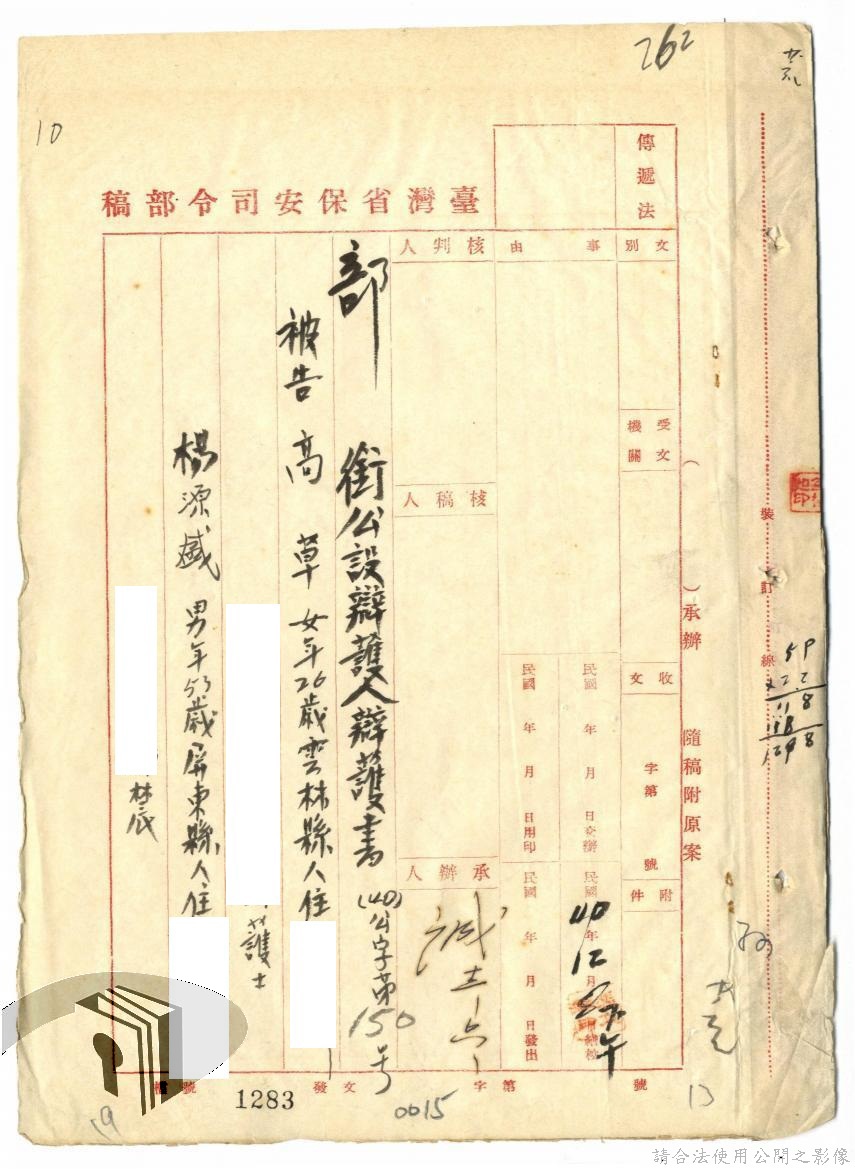 262
10
臺灣省保安司令部稿
傳遞法
文別
事由
核判人
受文機關
核稿人
收文
字第 號
附件
民國 年 月 日交辦
民國 年 月 日用印
民國 40 年 12 月
民國 年 月 日發出
承辦人
誠
( )承辦 隨稿附原案
裝訂線
部 銜公設辯護人辯護書 (40)公字第150号
被告 高 草 女年26歲雲林縣人住
護士
楊源盛 男年53歲屏東縣人住
林厎
59
x22
118
118
1298
檔號
發文 字第 號
1283
0015
13
19
請合法使用公開之影像